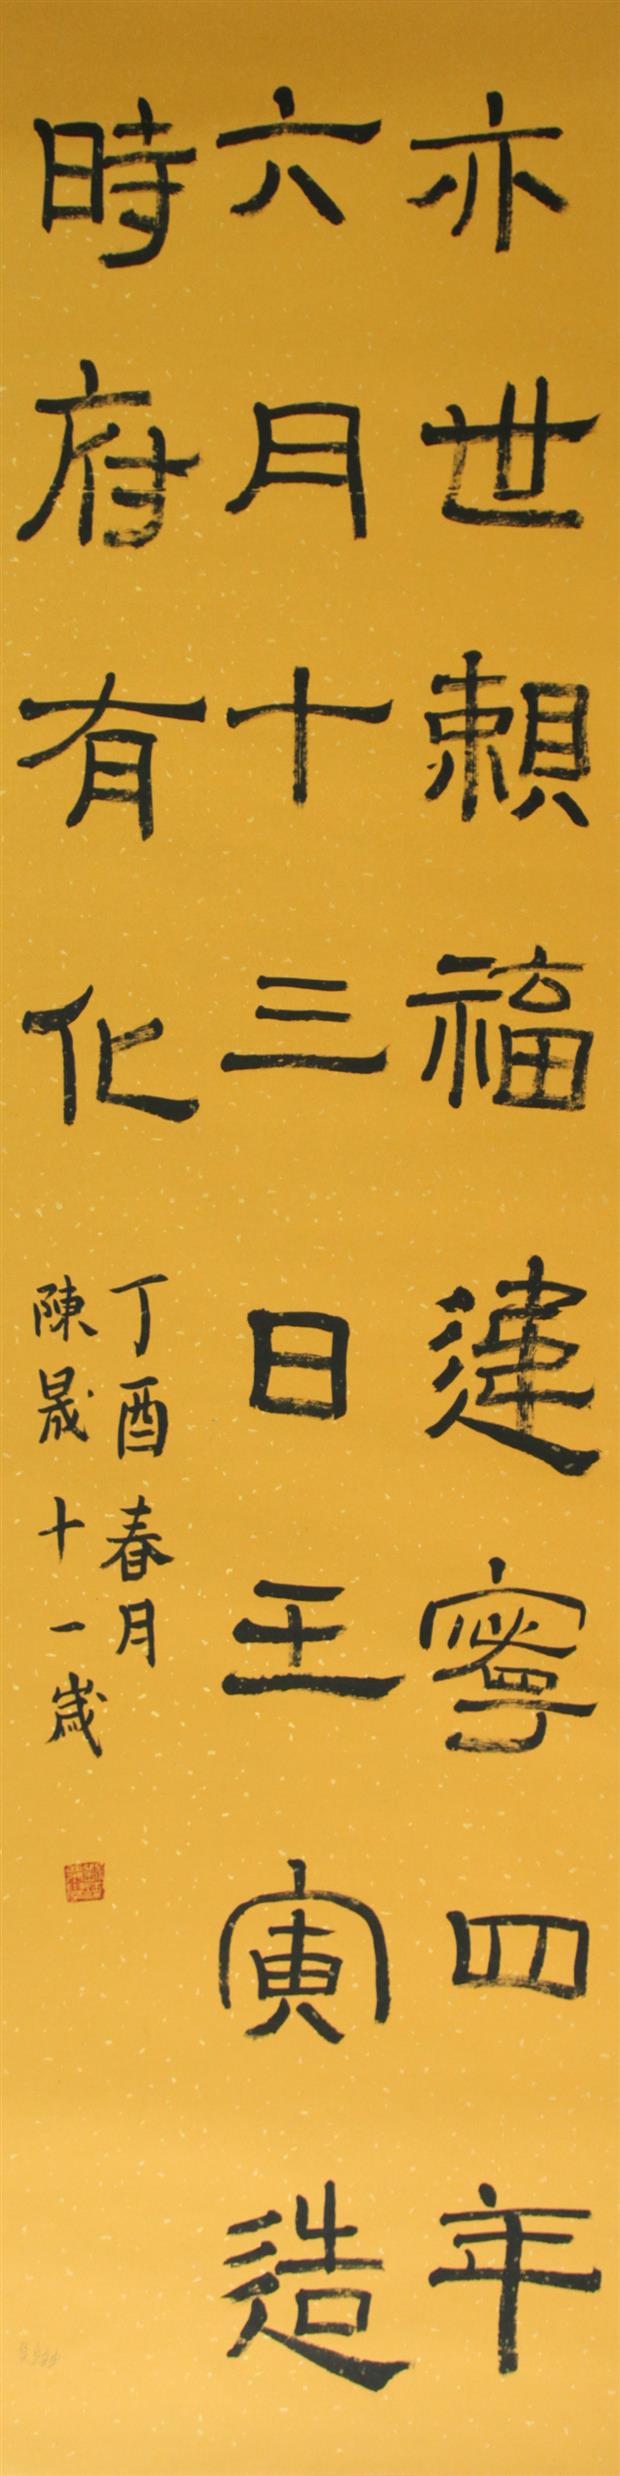 亦世賴福建寧四年
六月十三日壬寅造
時府有化
丁酉春月
陳晟十一歲